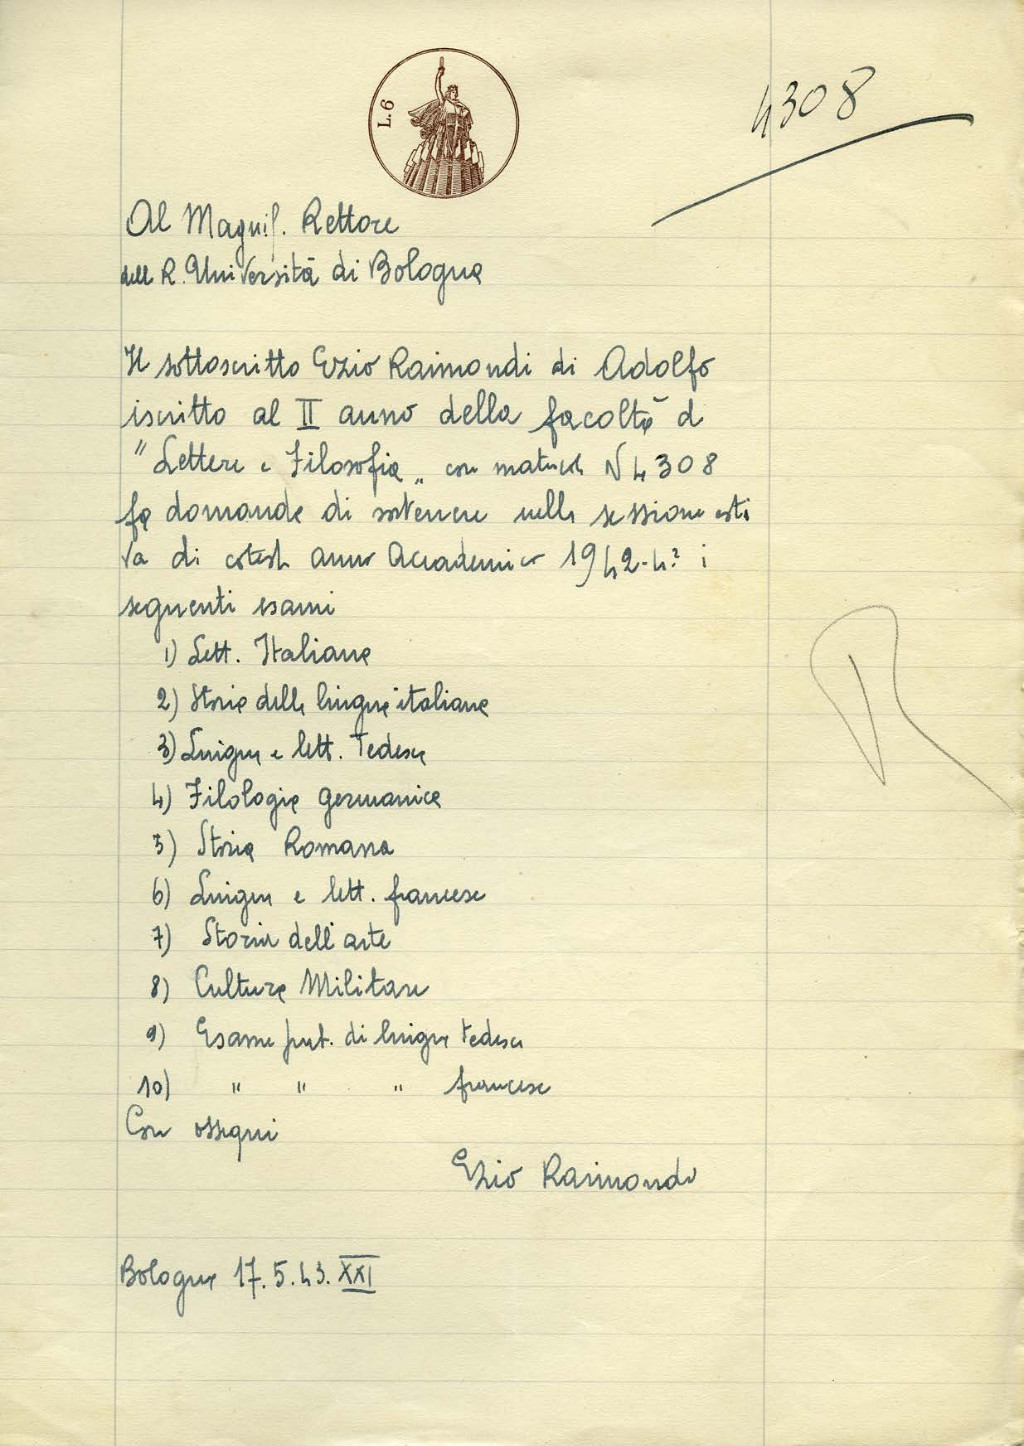 L. 6
4308
Al Magnif. Rettore
dell R. Università di Bologna
Il sottoscritto Ezio Raimondi di Adolfo
iscritto al II anno della facoltà d
"Lettere e Filosofia" con matricola N 4308
fa domanda di sostenere nella sessione esti
va di cotesto anno Accademico 1942-43 i
seguenti esami
1) Lett. Italiana
2) Storia della lingua italiana
3) Lingua e lett. Tedesca
4) Filologia germanica
5) Storia Romana
6) Lingua e lett. francese
7) Storia dell'arte
8) Cultura Militare
9) Esame di lingua tedesca
10) " " " francese
Con ossequi
Ezio Raimondi
Bologna 17.5.43.XXI